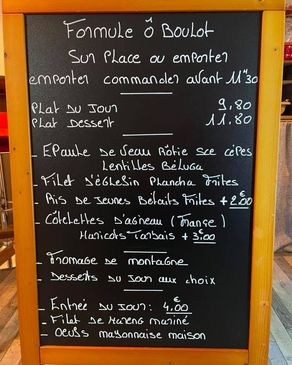 Formule Ô Boulot
Sur Place ou emporter
emporter commander avant 11h30
Plat du Jour 9.80
Plat Dessert 11.80
- Epaule de Veau Rôtie Sce cèpes
Lentilles Béluga
- Filet D'églefin Plancha Frites
- Ris de Jeunes Bétails Frites + 2€00
- Côtelettes D'agneau (France)
Haricots Tarbais + 3€00
- Fromage de montagne
- Desserts du Jour aux choix
- Entrée du Jour: 4€00
- Filet de Hareng mariné
- Oeufs mayonnaise maison